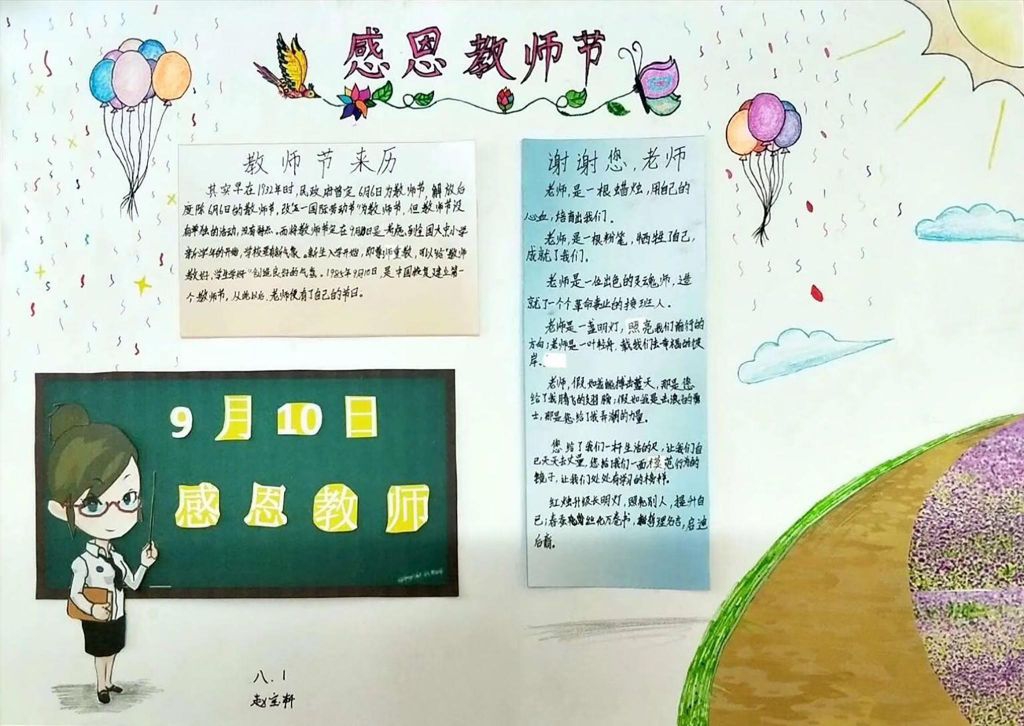 感恩教师节
教师节来历
其实早在1932年时,民政府曾定6月6日为教师节,解放后
废除6月6日的教师节,改五一国际劳动节"为教师节,但教师节没
有单独的活动,没有特点。而将教师节定在9月10日是考虑到全国大中小学
新学年的开始,学校要有新气象。新生入学开始,即尊师重教,可以给"教师
教好,学生学好"创造良好的气氛。1985年9月10日,是中国恢复建立第一
个教师节,从此以后,老师便有了自己的节日。
谢谢您,老师
老师,是一根蜡烛,用自己的
心血,培育出我们。
老师,是一根粉笔,牺牲了自己,
成就了我们。
老师是一位出色的灵魂师,造
就了一个个革命事业的接班人。
老师是一盏明灯,照亮我们前行的
方向;老师是一叶轻舟,载我们去幸福的彼
岸。
老师,假如我能搏击蓝天,那是您
给了我腾飞的翅膀;假如我是击浪的勇
士,那是您给了我弄潮的力量。
您给了我们一杆生活的尺,让我们自
己天天去丈量,您给我们一面模范行为的
镜子,让我们处处有学习的榜样。
红烛升级长明灯,照亮别人,提升自
己;春蚕
9月10日
感恩教师
八.1